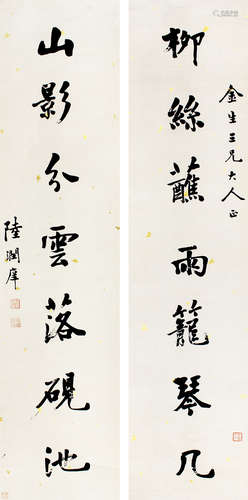 金生三兄大人正
柳絲蘸雨籠琴几
山影分雲落硯池
陸潤庠